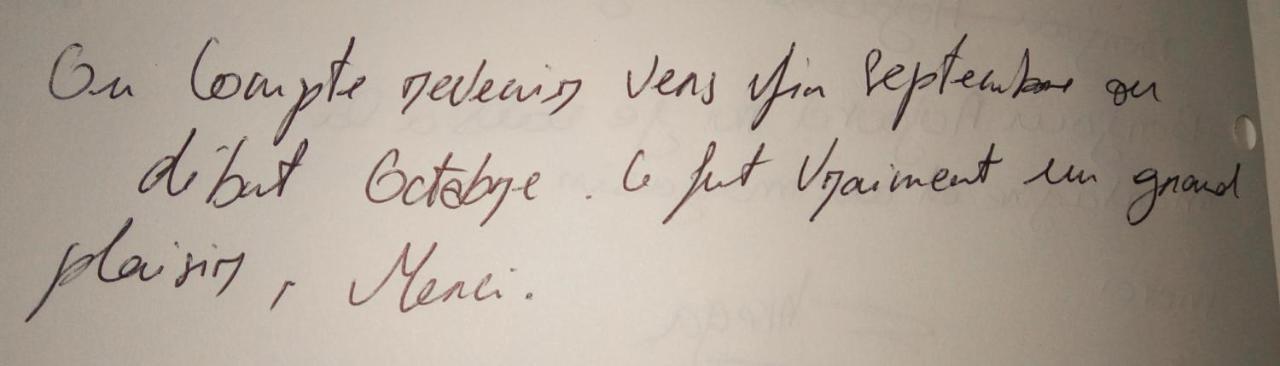 On Compte revenir vers fin Septembre ou
début Octobre. Ce fut vraiment un grand
plaisir, Merci.